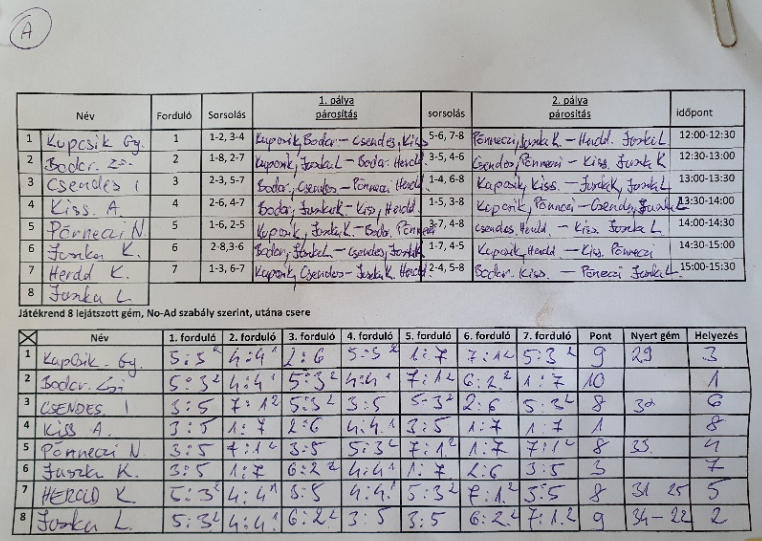 A
Név Forduló Sorsolás 1. pálya párosítás sorsolás 2. pálya párosítás időpont
1 Kupcsik Gy. 1 1-2, 3-4 Kupcsik, Bodor - Csendes, Kiss 5-6, 7-8 Pönneczi, Juszka K. - Herold. Juszka L 12:00-12:30
2 Bodor. Zs. 2 1-8, 2-7 Kupcsik, Juszka L - Bodor. Herold. 3-5, 4-6 Csendes, Pönneczi - Kiss. Juszka K 12:30-13:00
3 Csendes I 3 2-3, 5-7 Bodor, Csendes - Pönneczi Herold 1-4, 6-8 Kupcsik, Kiss. - Juszka K, Juszka L 13:00-13:30
4 Kiss. A. 4 2-6, 4-7 Bodor, Juszka K - Kiss, Herold. 1-5, 3-8 Kupcsik, Pönneczi - Csendes, Juszka L 13:30-14:00
5 Pönneczi N. 5 1-6, 2-5 Kupcsik, Juszka K - Bodor. Pönneczi 3-7, 4-8 Csendes, Herold. - Kiss. Juszka L 14:00-14:30
6 Juszka K. 6 2-8,3-6 Bodor, Juszka L - Csendes, Juszka K 1-7, 4-5 Kupcsik, Herold - Kiss. Pönneczi 14:30-15:00
7 Herold K. 7 1-3, 6-7 Kupcsik, Csendes - Juszka K. Herold 2-4, 5-8 Bodor. Kiss. - Pöneczi Juszka L. 15:00-15:30
8 Juszka L
Játékrend 8 lejátszott gém, No-Ad szabály szerint, utána csere
Név 1. forduló 2. forduló 3. forduló 4. forduló 5. forduló 6. forduló 7. forduló Pont Nyert gém Helyezés
1 Kupcsik. Gy. 5:3 2 4:4 1 2:6 5:3 2 1:7 7:1 2 5:3 2 9 29 3
2 Bodor. 5:3 2 4:4 1 5:3 2 4:4 1 7:1 2 6:2. 2 1:7 10 1
3 CSENDES. I 3:5 7:1 2 5:3 2 3:5 5:3 2 2:6 5:3 2 8 6
4 KISS A. 3:5 1:7 2:6 4:4 1 3:5 1:7 1:7 1 8
5 Pönneczi N. 3:5 7:1 2 3:5 5:3 2 7:1 2 1:7 7:1 2 8 33. 4
6 Juszka K. 3:5 1:7 6:2 2 4:4 1 1:7 2:6 3:5 3 7
7 HEROLD K 5:3 2 4:4 1 3:5 4:4 1 5:3 2 7:1 2 3:5 8 31 25 5
8 Juszka L. 5:3 2 4:4 1 6:2 2 3:5 3:5 6:2 2 7:1 2 9 34-22 2